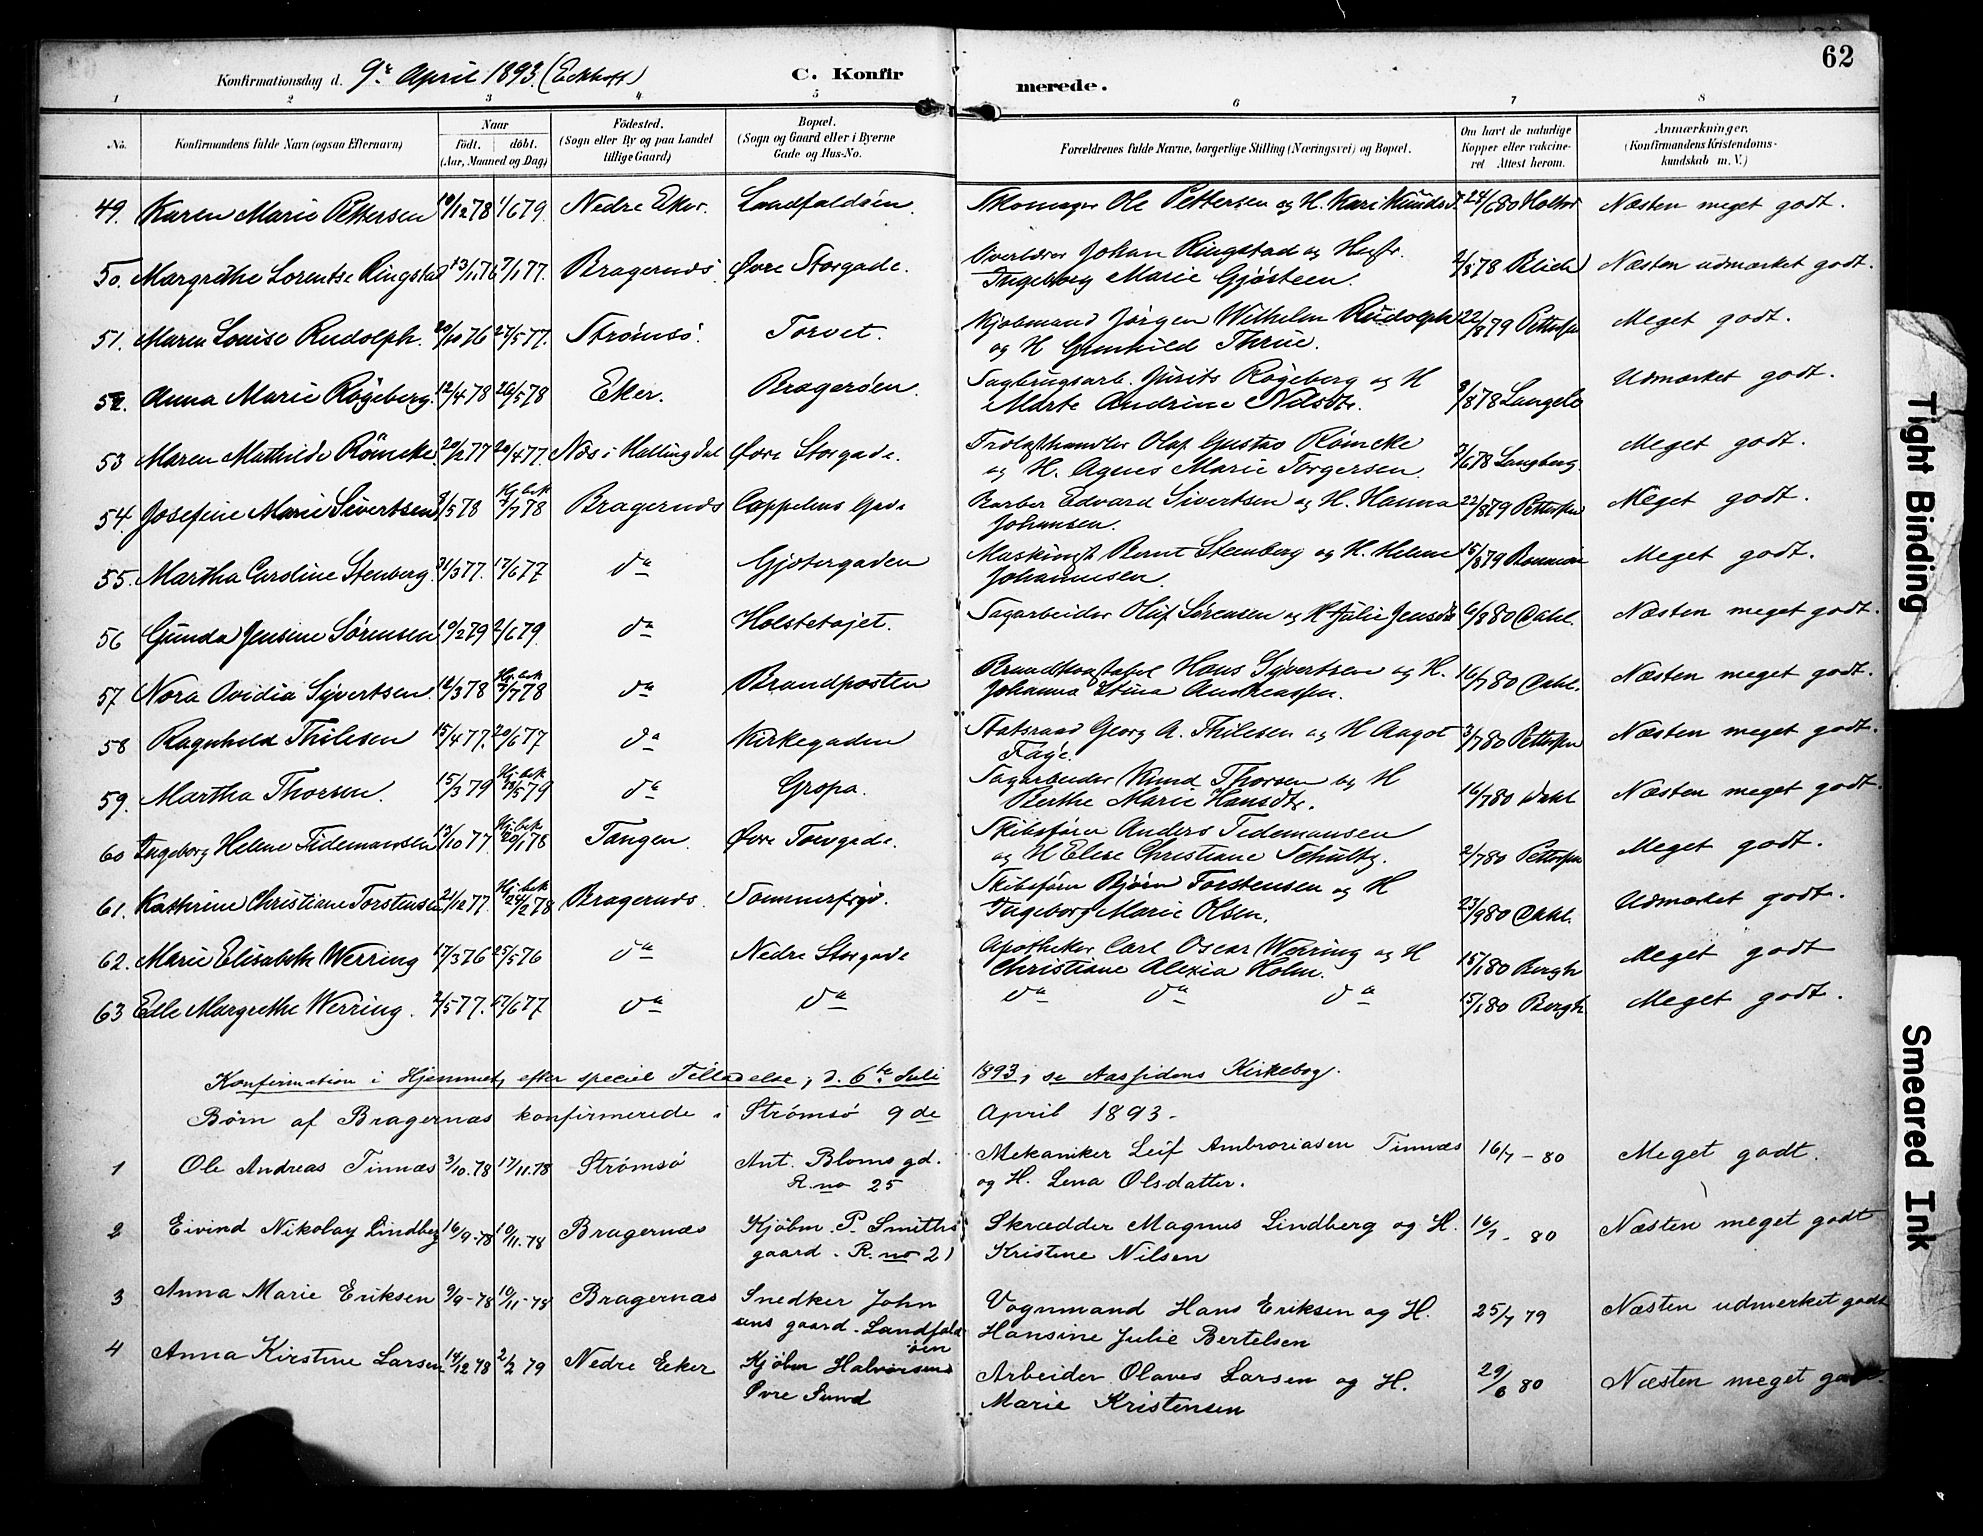 62
Konfirmationsdag d. 9de April 1893. (Eckhoff)
C. Konfirmerede.
1 2 3 4 5 6 7 8
No.
Konfirmandens fulde Navn (ogsaa Efternavn)
Naar
født. døbt.
(Aar, Maaned og Dag)
Fødested.
(Sogn eller By og paa Landet
tillige Gaard)
Bopæl.
(Sogn og Gaard eller i Byerne
Gade og Hus-No.
Forældrenes fulde Navne, borgerlige Stilling (Næringsvei) og Bopæl.
Om havt de naturlige
Kopper eller vakcine-
ret Attest herom.
Anmærkninger.
(Konfirmandens Kristendoms-
kundskab m. V.)
49. Karen Marie Pettersen 10/12 78 1/6 79. Nedre Eker. Landfaldøen. Skomager Ole Pettersen og H. Kari Knudsd. 24/6 80 Holter Næsten meget godt.
50. Margrethe Lorentse Ringstad 13/11 76 7/1 77. Bragernds. Øvre Storgade. Johan Ringstad og Hustr. 2/8 78 Næsten udmærket godt.
Ingeborg Marie Gjøsteen.
51. Maren Louise Rudolph. 20/10 76 27/5 77. Strømsø. Torvet. Kjøbmand Jørgen Wilhelm Rudolph 22/8 79 Pettersen Meget godt.
og H Gunhild Thrue.
52. Anna Marie Røgeberg. 12/4 78 26/5 78 Eker. Bragerøen. Sagbrugsarb. Røgeberg og H 9/8 78 Udmærket godt.
Marte Andrine Nilsdtr.
53 Maren Mathilde Römcke. 20/2 77 20/4 77. Næs i Hallingdal Øvre Storgade. Trælasthandler Olaf Gustav Römcke 7/6 78 Langberg. Meget godt.
og H. Agnes Marie Torgersen.
54. Josefine Marie Sivertsen 9/5 78 Hj. bek 7/7 78 Bragernds Cappelens Gade Barber Edvard Sivertsen og H. Hanna 22/8 79 Pettersen Meget godt.
Johansen.
55. Martha Caroline Stenberg. 31/3 77. 17/6 77 da Gjetergaden Maskinist Bernt Stenberg og H. Helene 15/8 79 Meget godt.
Johannesen.
56 Gunda Jensine Sørensen 10/2 79 2/6 79. da Holstetøjet. Sagarbeider Oluf Sørensen og H Julie Jensdtr 6/8 80 Dahl. Næsten meget godt.
57 Nora Ovidia Syvertsen. 12/3 78 Hj. bek 7/7 78 da Brandposten Brandkonstabel Hans Syvertsen og H. 16/7 80 Dahl. Næsten meget godt.
Johanna Stina Andreassen.
58 Ragnhild Thilesen 15/4 77. 20/6 77 da Kirkegaden Statsraad Georg A. Thilesen og H Aagot 3/7 80 Pettersen Næsten meget godt.
Faye.
59. Martha Thorsen. 15/3 79 Hj. bek /5 79 da Gropa. Sagarbeider Knud Thorsen og H 16/7 80 Dahl Næsten meget godt.
Berthe Marie Hansdtr.
60 Ingeborg Helene Tidemansen 13/10 77. Hj. bek 20/1 78 Tangen. Øvre Torvgade. Skibsfører Anders Tidemansen 2/7 80 Pettersen Meget godt.
og H Elise Christiane Schultz.
61. Kathrine Christiane Torstensen 21/12 77. Hj. bek 24/2 78 Bragernds. Sommerfryd. Skibsfører Bjørn Torstensen og H 23/9 80 Dahl. Udmærket godt.
Ingeborg Marie Olsen.
62. Marie Elisabeth Werring 17/3 76 25/5 76 da Nedre Storgade Apotheker Carl Oscar Werring og H 15/1 80 Bergh Meget godt
Christiane Alexia Holm.
63 Elle Margrethe Werring. 2/5 77. 17/6 77 da da da da da 15/1 80 Bergh Meget godt.
Konfirmation i Hjemmet, efter speciel Tilladelse, d. 6te Juli 1893, se Aassidens Kirkebog.
Børn af Bragernæs konfirmerede i Strømsø 9de April 1893.
1 Ole Andreas Tinnæs 3/10.78 17/11.78 Strømsø Ant. Bloms gd. Mekaniker Leif Ambrosiasen Tinnæs 16/7 - 80 Meget godt.
R. no 25 og H. Lena Olsdatter.
2 Eivind Nikolay Lindberg 16/9-78 10/11.-78 Bragernæs Kjøbm. P. Smiths Skrædder Magnus Lindberg og H. 16/7 - 80 Næsten meget godt
gaard. R. no 21 Kristine Nilsen
3 Anna Marie Eriksen 9/9-78 10/11-78 Bragernæs Snedker John Vognmand Hans Eriksen og H. 25/7 79 Næsten udmerket godt
sens gaard. Landfald Hansine Julie Bertelsen
øen
4 Anna Kirstine Larsen 14/12 78 2/2 79 Nedre Eker Kjøbm Halvorsens Arbeider Olaves Larsen og H. 29/6 80 Næsten meget godt.
Øvre Sund Marie Kristensen
Tight Binding
Smeared Ink